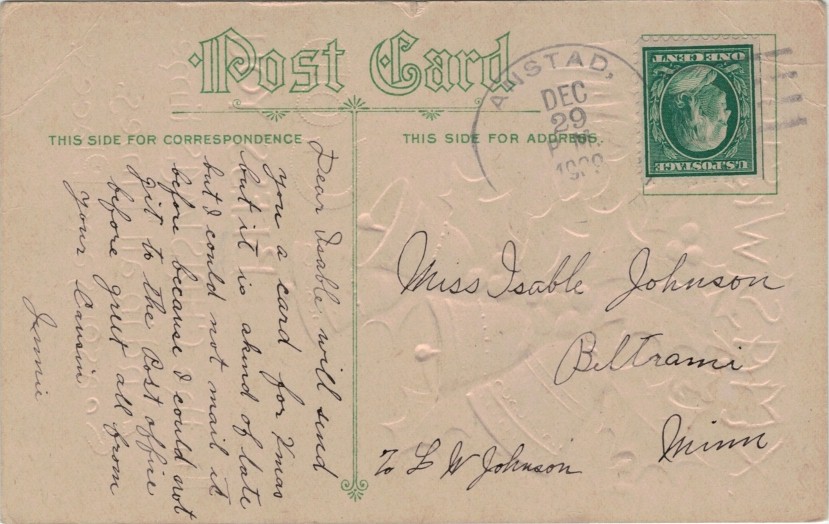 Post Card
THIS SIDE FOR CORRESPONDENCE
THIS SIDE FOR ADDRESS.
ANSTAD,
DEC
29
U.S. POSTAGE
ONE CENT
Dear Isable, will send
you a card for Xmas
but it is a kind of late
but I could not mail it
before because I could not
git to the Post office
before greet all from
your Causin
Jennie
Miss Isable Johnson
Beltrami
Minn
To L W Johnson